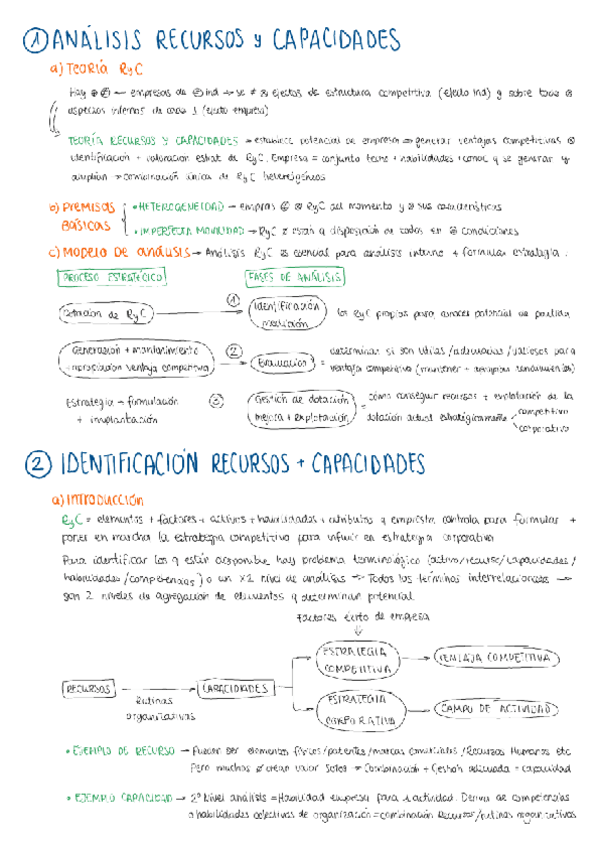 ① ANÁLISIS RECURSOS y CAPACIDADES
a) TEORÍA RyC
Hay empresas de ind → se ≠ efectos de estructura competitiva (efecto ind) y sobre todo
aspectos internos de cada 1 (efecto empresa)
TEORÍA RECURSOS Y CAPACIDADES → establece potencial de empresa ⇒ generar ventajas competitivas
identificación + valoración estrat de RyC. Empresa = conjunto tecno + habilidades + conoc q se generan y
amplían → combinación única de RyC heterogéneos
b) PREMISAS BÁSICAS
• HETEROGENEIDAD → empras RyC del momento y sus características
• IMPERFECTA MOVILIDAD → RyC están a disposición de todos en condiciones
c) MODELO DE ANÁLISIS → Análisis RyC es esencial para análisis interno + formular estrategia.
PROCESO ESTRATÉGICO
FASES DE ANÁLISIS
Dotación de RyC
①
Identificación
medición
los RyC propios para conocer potencial de partida
Generación + mantenimiento
+ apropiación ventaja competitiva
②
Evaluación
= determinar si son útiles / adecuados / valiosos para
ventaja competitiva (mantener + apropiar rendimientos)
Estrategia → formulación
+ implantación
③
Gestión de dotación
mejora + explotación
= cómo conseguir recursos + explotación de la
dotación actual estratégicamente
competitivo
corporativo
② IDENTIFICACIÓN RECURSOS + CAPACIDADES
a) INTRODUCCIÓN
RyC = elementos + factores + activos + habilidades + atributos q empresa controla para formular +
poner en marcha la estrategia competitiva para influir en estrategia corporativa
Para identificar los q están disponible hay problema terminológico (activo/recurso/capacidades/
habilidades/competencias) o un nivel de análisis → Todos los términos interrelacionados →
son 2 niveles de agregación de elementos q determinan potencial.
Factores éxito de empresa
ESTRATEGIA
COMPETITIVA
VENTAJA COMPETITIVA
RECURSOS
Rutinas
organizativas
CAPACIDADES
ESTRATEGIA
CORPORATIVA
CAMPO DE ACTIVIDAD
• EJEMPLO DE RECURSO → Pueden ser elementos físicos/patentes/marcas comerciales/Recursos Humanos etc
Pero muchos crean valor solos → Coordinación + Gestión adecuada = capacidad
• EJEMPLO CAPACIDAD → 2º Nivel análisis = Habilidad empresa para 1 actividad. Deriva de competencias
o habilidades colectivas de organización = combinación Recurso/rutinas organizativas